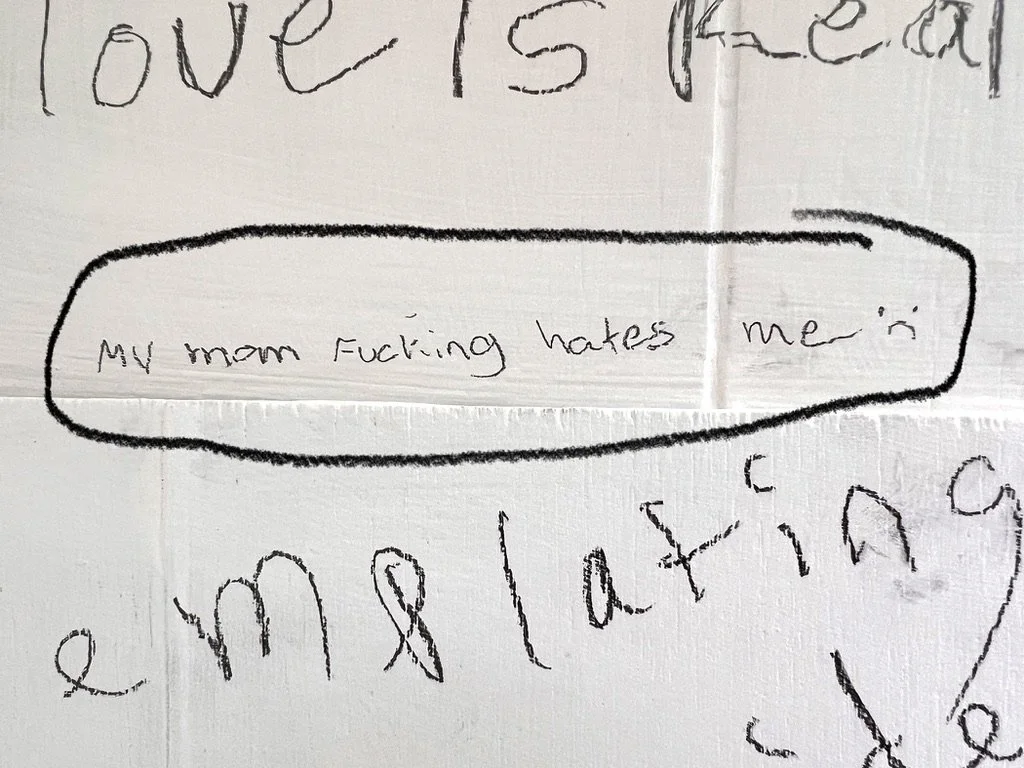 love is Real
My mom Fucking hates me :(
emplating